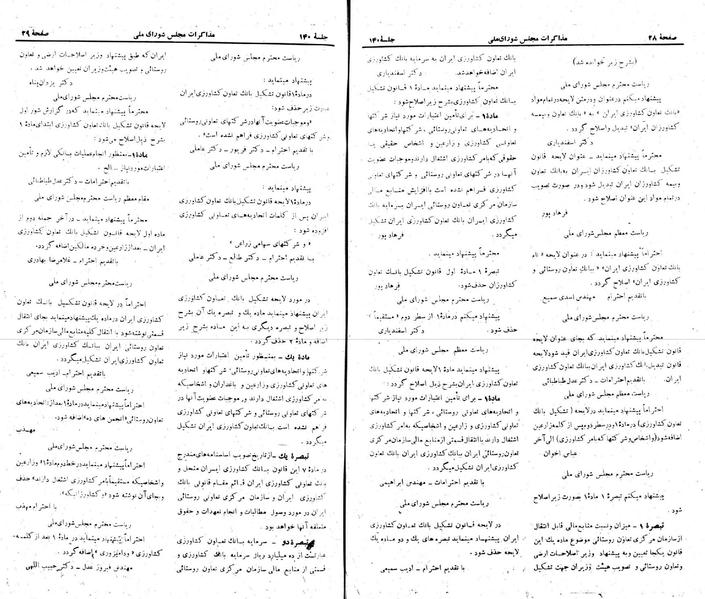 صفحهٔ ۲۸ مذاکرات مجلس شورای ملی جلسهٔ ۱۴۰
(بشرح زیر خوانده شد)
ریاست محترم مجلس شورای ملی
پیشنهاد میکنم درعنوان ودرمتن لایحه درتمام مواد
«بانک تعاون کشاورزی ایران» به «بانک تعاون وبیمه
کشاورزان ایران» تبدیل واصلاح گردد.
دکتر اسفندیاری
محترماً پیشنهاد مینماید - عنوان لایحه قانون
تشکیل بانک تعاون کشاورزی ایران به بانک تعاون
وبیمه کشاورزان ایران تبدیل شود ودر صورت تصویب
درتمام مواد این عنوان اصلاح شود.
فرهاد پور
ریاست معظم مجلس شورای ملی
احتراماً پیشنهاد مینماید: در عنوان لایحه «نام
بانک تعاون کشاورزی ایران» «بانک تعاون روستائی و
کشاورزی ایران» اصلاح گردد.
باتقدیم احترام - مهندس اسدی سمیع
ریاست محترم مجلس شورای ملی
محترماً پیشنهاد مینماید که بجای عنوان لایحه
قانون تشکیل بانک تعاون کشاورزی ایران قید شود لایحه
قانون تبدیل بانک کشاورزی ایران به بانک تعاون کشاورزی
ایران. باتقدیم احترام - دکتر عدل طباطبائی
ریاست محترم مجلس شورای ملی
احتراماً پیشنهاد مینماید درلایحه (تشکیل بانک
تعاون کشاورزی) درمادهٔ ۱ ودرسطر دوم پس از کلمه زارعین
اضافه شود (واشخاص وشرکتها که بامر کشاورزی) الی آخر
عباس اخوان
پیشنهاد میکنم تبصرهٔ ۱ مادهٔ ۱ بصورت زیر اصلاح
شود.
تبصرهٔ ۱ - میزان ونسبت منابع مالی قابل انتقال
ازسازمان مرکزی تعاون روستائی موضوع ماده یک این
قانون یکجا تعیین وبه پیشنهاد وزیر اصلاحات ارضی
وتعاون روستائی و تصویب هیئت وزیران جهت تشکیل
بانک تعاون کشاورزی ایران به سرمایه بانک تعاون کشاورزی
ایران اضافه خواهد شد. دکتر اسفندیاری
محترماً پیشنهاد مینماید مادهٔ ۱ قانون تشکیل
بانک تعاون کشاورزی بشرح زیر اصلاح شود:
مادهٔ ۱ - برای تأمین اعتبارات مورد نیاز شرکتها
و اتحادیه‌های تعاونی روستائی - شرکتها و اتحادیه‌های
تعاونی کشاورزی و زارعین و اشخاص حقیقی یا
حقوقی که بامر کشاورزی اشتغال دارند وموجبات عضویت
آنها در شرکتهای تعاونی روستائی و شرکتهای تعاونی
کشاورزی فراهم نشده است با افزایش منابع مالی
سازمان مرکزی تعاون روستائی ایران بسرمایه بانک
کشاورزی ایران بانک تعاون کشاورزی ایران تشکیل
میگردد. فرهاد پور
محترماً پیشنهاد مینماید.
تبصرهٔ ۱ مادهٔ اول قانون تشکیل بانک تعاون
کشاورزان حذف شود. فرهاد پور
پیشنهاد میکنم درمادهٔ ۱ از سطر دوم «مستقیماً»
حذف شود. دکتر اسفندیاری
ریاست معظم مجلس شورای ملی
محترماً پیشنهاد مینماید مادهٔ ۱ لایحه تشکیل بانک
تعاون کشاورزی ایران بشرح ذیل اصلاح گردد:
مادهٔ ۱ - برای تأمین اعتبارات مورد نیاز شرکتها
و اتحادیه‌های تعاون روستائی - شرکتها و اتحادیه‌های
تعاونی کشاورزی و زارعین و اشخاصیکه بامر کشاورزی
اشتغال دارند با انتقال قسمتی از منابع مالی سازمان مرکزی
تعاون روستائی ایران به بانک کشاورزی ایران بانک تعاون
کشاورزی ایران تشکیل میگردد.
با تقدیم احترام - مهندس ابراهیمی
ریاست محترم مجلس شورای ملی
در لایحه قانون تشکیل بانک تعاون کشاورزی
ایران پیشنهاد مینماید تبصره های یک و دو ماده یک
حذف گردد.
با تقدیم احترام - ادیب سمیعی
جلسهٔ ۱۴۰ مذاکرات مجلس شورای ملی صفحهٔ ۲۹
ریاست محترم مجلس شورای ملی
پیشنهاد مینماید:
درمادهٔ ۱ قانون تشکیل بانک تعاون کشاورزی ایران
عبارت زیر حذف شود:
«وموجبات عضویت آنها در شرکتهای تعاونی روستائی
و شرکتهای تعاونی کشاورزی فراهم نشده است».
با تقدیم احترام - دکتر فریور - دکتر عاملی
پیشنهاد مینماید:
درمادهٔ ۱ لایحه قانون تشکیل بانک تعاون کشاورزی
ایران پس از کلمات اتحادیه‌های تعاونی کشاورزی
افزوده شود:
«و شرکتهای سهامی زراعی»
با تقدیم احترام - دکتر طالع - دکتر عاملی
ریاست محترم مجلس شورای ملی
در مورد لایحه تشکیل بانک تعاون کشاورزی
ایران پیشنهاد مینماید ماده یک و تبصره یک آن بشرح
زیر اصلاح و تبصره دیگری به این ماده بشرح زیر
اضافه و مادهٔ ۲ حذف گردد.
مادهٔ یک - بمنظور تأمین اعتبارات مورد نیاز
شرکتها واتحادیه‌های تعاونی روستائی، شرکتها و اتحادیه
های تعاونی کشاورزی وزارعین و باغداران و اشخاصیکه
به امر کشاورزی اشتغال دارند و موجبات عضویت آنها در
شرکتهای تعاونی روستائی و شرکتهای تعاونی کشاورزی
فراهم نشده است بانک تعاون کشاورزی ایران تشکیل
میگردد.
تبصره یک - ازتاریخ تصویب اساسنامه‌های مندرج
در مادهٔ ۷ این قانون بانک کشاورزی ایران منحل و
بانک تعاون کشاورزی ایران قائم مقام قانونی بانک
کشاورزی ایران و سازمان مرکزی تعاون روستائی
ایران در مورد وصول مطالبات و انجام تعهدات و حقوق
متعلقه آنها خواهد بود.
تبصره دو - سرمایه بانک تعاون کشاورزی
عبارتست از ده میلیارد ریال سرمایه بانک کشاورزی و
قسمتی از منابع مالی سازمان مرکزی تعاون روستائی
ایران که طبق پیشنهاد وزیر اصلاحات ارضی و تعاون
روستائی و تصویب هیئت وزیران تعیین خواهد شد.
دکتر یزدان پناه
ریاست محترم مجلس شورای ملی
محترماً پیشنهاد مینماید که در گزارش شور اول
لایحه قانون تشکیل بانک تعاون کشاورزی ابتدای مادهٔ ۱
بشرح ذیل اصلاح می‌شود:
مادهٔ ۱ - بمنظور انجام عملیات بانکی لازم و تأمین
اعتبارات مورد نیاز ... الخ.
باتقدیم احترامات - دکتر عدل طباطبائی
مقام معظم ریاست محترم مجلس شورای ملی
محترماً پیشنهاد مینماید - در آخر جمله دوم از
ماده اول لایحه قانون تشکیل بانک تعاون کشاورزی
ایران - بعد از زارعین وخرده مالکین اضافه گردد.
با تقدیم احترام - غلامرضا بهادری
احتراماً در لایحه قانون تشکیل بانک تعاون
کشاورزی ایران درماده یک پیشنهاد مینماید بجای انتقال
قسمتی نوشته شود با انتقال کلیه منابع مالی سازمان مرکزی
تعاون روستائی ایران بانک کشاورزی ایران بانک تعاون
کشاورزی ایران تشکیل میگردد.
باتقدیم احترام - ادیب سمیعی
ریاست محترم مجلس شورای ملی
احتراماً پیشنهاد مینماید درمادهٔ ۱ بعد از اتحادیه‌های
تعاون روستائی و انجمن های ده اضافه شود.
مهذب
ریاست محترم مجلس شورای ملی
احتراماً پیشنهاد مینماید در خط دوم مادهٔ ۱ «وزارعین
واشخاصیکه مستقیماً بامر کشاورزی اشتغال دارند» حذف
وبجای آن نوشته شود «و کشاورزانیکه»
با احترام مهذب
احتراماً پیشنهاد مینماید در مادهٔ ۱ بعد از کلمه
کشاورزی «ودامپروری» اضافه گردد.
مهندس فیروز عدل - دکتر حبیب اللهی